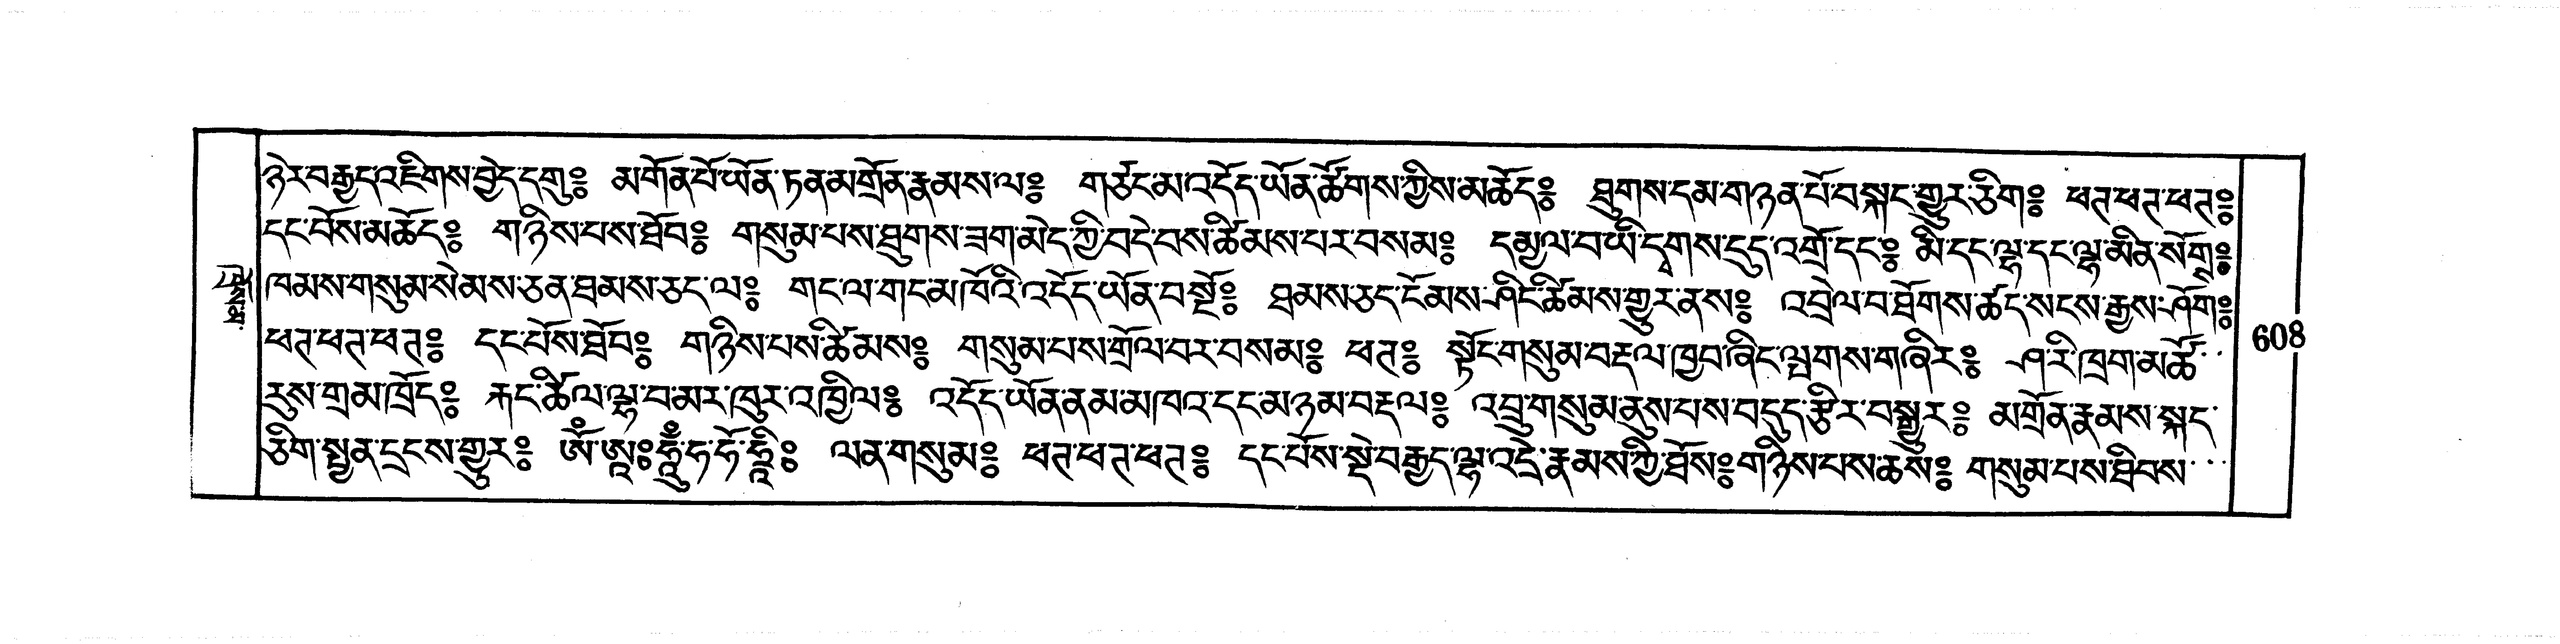 ཉེར་བརྒྱད་འཇིགས་བྱེད་དགུ༔ མགོན་པོ་ཡོན་ཏན་མགྲོན་རྣམས་ལ༔ གཙང་མ་འདོད་ཡོན་ཚོགས་ཀྱིས་མཆོད༔ ཐུགས་དམ་གཉན་པོ་བསྐང་གྱུར་ཅིག༔ ཕཊ་ཕཊ་ཕཊ༔
དང་པོས་མཆོད༔ གཉིས་པས་ཐོབ༔ གསུམ་པས་ཐུགས་ཟག་མེད་ཀྱི་བདེ་བས་ཚིམས་པར་བསམ༔ དམྱལ་བ་ཡི་དྭགས་དུད་འགྲོ་དང་༔ མི་དང་ལྷ་དང་ལྷ་མིན་སོགས༔
ཁམས་གསུམ་སེམས་ཅན་ཐམས་ཅད་ལ༔ གང་ལ་གང་མཁོའི་འདོད་ཡོན་བསྔོ༔ ཐམས་ཅད་ངོམས་ཤིང་ཚིམས་གྱུར་ནས༔ འབྲེལ་བ་ཐོགས་ཚད་སངས་རྒྱས་ཤོག༔
ཕཊ་ཕཊ་ཕཊ༔ དང་པོས་ཐོབ༔ གཉིས་པས་ཚིམས༔ གསུམ་པས་གྲོལ་བར་བསམ༔ ཕཊ༔ སྟོང་གསུམ་བརྡལ་ཁྱབ་ཞིང་ལྤགས་གཞིར༔ ཤ་རི་ཁྲག་མཚོ་
རུས་གྲམ་ཁྲོད༔ རྐང་ཚིལ་ལྷ་བ་མར་ཁུར་འཁྱིལ༔ འདོད་ཡོན་ནམ་མཁའ་དང་མཉམ་བརྡལ༔ འབྲུ་གསུམ་ནུས་པས་བདུད་རྩིར་བསྒྱུར༔ མགྲོན་རྣམས་སྐད་
ཅིག་སྤྱན་དྲངས་གྱུར༔ ཨོཾ་ཨཱཿཧཱུྃ་ཧ་ཧོ་ཧྲཱི༔ ལན་གསུམ༔ ཕཊ་ཕཊ་ཕཊ༔ དང་པོས་སྡེ་བརྒྱད་ལྷ་འདྲེ་རྣམས་ཀྱི་ཐོས༔ གཉིས་པས་ཆས༔ གསུམ་པས་ཐིབས་
608